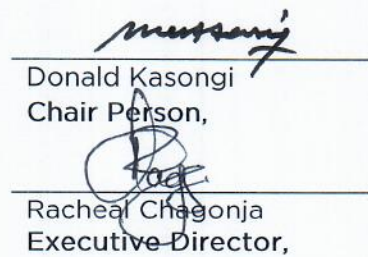 Donald Kasongi
Chair Person,
Racheal Chagonja
Executive Director,